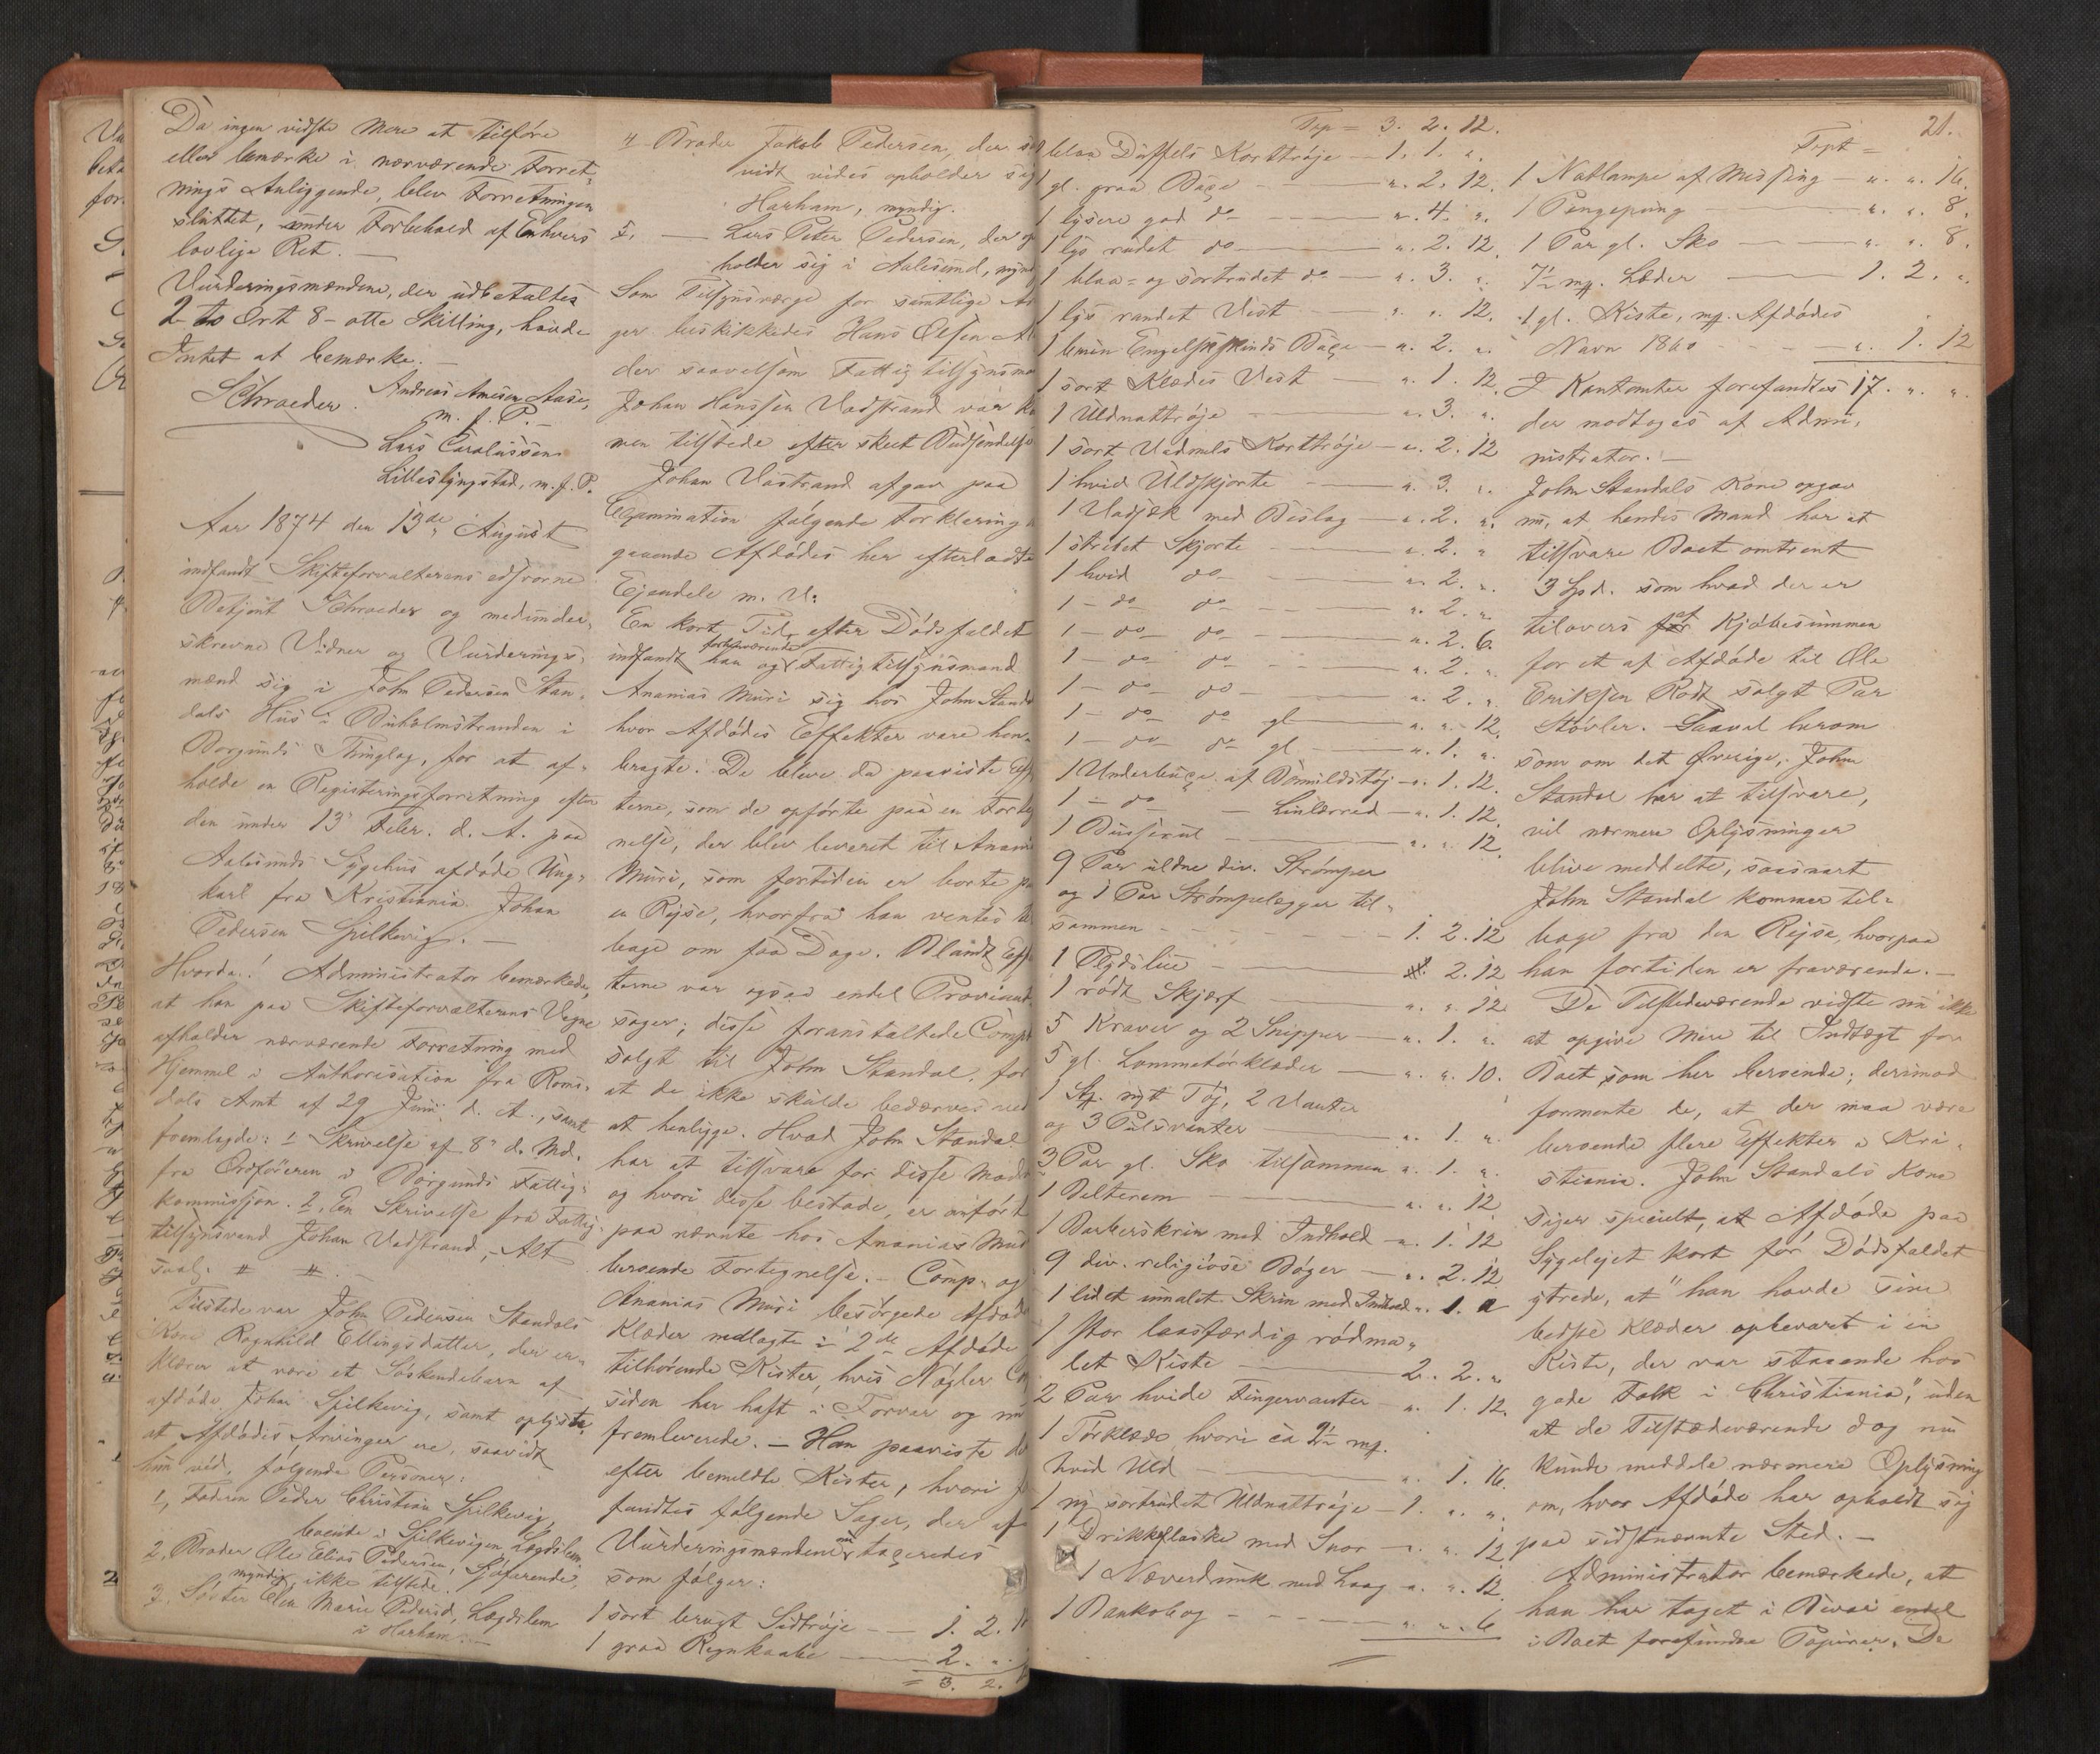 Da ingen vidste Mere at tilføre
eller bemærke i nærværende Forret-
nings Anliggende, blev Forretningen
sluttet, under Forbehold af Enhvers
lovlige Ret. —
Vurderingsmændene, der udbetaltes
2 to Ort 8 - otte Skilling, havde
Intet at bemærke. —
Schroeder. Andreas Amesen Aase,
m. f. P. —
Lars Carolussen
Lilleslyngstad, m. f. P.
Aar 1874 den 13de August
indfandt Skifteforvalterens edsvorne
Betjent Schroeder og medunder-
skrevne Vidner og Vurderings-
mænd sig i John Pedersen Stan-
dals Hus i Buholmstranden i
Borgunds Thinglag, for at af-
holde en Registeringsforretning efter
den under 13 Febr. d. A. paa
Aalesunds Sygehus afdøde Ung-
karl fra Kristiania Johan
Pedersen Spilkevig. —
Hvorda! Administrator bemærkede,
at han paa Skifteforvalterens Vegne
afholder nærværende Forretning med
Hjemmel i Authorisation fra Roms-
dals Amt af 29 Juni d. A., samt
fremlagde: 1 Skrivelse af 8 d. Md.
fra Ordføreren i Borgunds Fattig-
kommission. 2, En Skrivelse fra Fattig-
tilsynsmand Johan Vadstrand, - Alt
saal. # #.
Tilstede var John Pedersen Standals
Kone Ragnhild Ellingsdatter, der er-
klærer at være et Søskendebarn af
afdøde Johan Spilkevig, samt oplyste,
at Afdødes Arvinger ere, saavidt
hun ved, følgende Personer:
1, Faderen Peder Christian Spilkevig,
boende i Spilkevigen Lægdslem.
2, Broder Ole Elias Pedersen, Sjøfarende,
myndig, ikke tilstede.
3, Søster Elen Marie Pedersd. Lægdslem
i Harham. —
4 Broder Jakob Pedersen, der
vidt vides opholder sig
Harham, myndig.
5, — Lars Peter Pedersen, der op
holder sig i Aalesund, mynd
Som Tilsynsværge for samtlige
ger beskikkedes Hans Olsen
der saavelsom Fattigtilsynsma
Johan Hanssen Vadstrand var
men tilstede efter skeet Budsendelse
Johan Vastrand afgav paa
Examination følgende Forklaring
gaaende Afdødes her efterladte
Ejendele m. V:
En kort Tid efter Dødsfaldet
indfandt han og forhenværende Fattigtilsynsmand
Ananias Muri sig hos John Stand
hvor Afdødes Effekter vare hen-
bragte. De bleve da paaviste Eff
terne, som de opførte paa en Forteg
nelse, der blev leveret til Anani
Muri, som fortiden er borte p
en Rejse, hvorfra han ventes til
bage om faa Dage. Blandt Eff
terne var ogsaa endel Proviant
sager; disse foranstaltede Comp
solgt til John Standal, for
at de ikke skulde bedærves ved
at henligge. Hvad John Standal
har at tilsvare for disse
og hvori disse bestode, er anført
paa nævnte hos Ananias Muri
beroende Fortegnelse. — Comp. og
Ananias Muri besørgede Afdøde
Klæder nedlagte i 2de Afdøde
tilhørende Kister, hvis Nøgler
siden har haft i Forvar og nu
fremleverede. — Han paaviste
efter bemeldte Kister, hvori
fandtes følgende Sager, der af
Vurderingsmændene ansv tageredes
som følger:
1 sort brugt Sidtrøje — 1. 2.
1 graa Regnkaabe — 2. "
= 3. 2.
Trp = 3. 2. 12.
blaa Duffels Korttrøje — 1. 1. "
1 gl. graa Buxe — ". 2. 12.
1 lysere god do — ". 4. ".
1 lys rudet do — ". 2. 12.
1 blaa= og sortrudet do — ". 3. ".
1 lys randet Vest — ". ". 12.
1 brun Engelskskinds Buxe — ". 2. ".
1 sort Klædes Vest — ". 1. 12.
1 Uldnattrøje — ". 3. ".
1 sort Vadmels Korttrøje — ". 2. 12
1 hvid Uldskjorte — ". 3. ".
1 Vadsæk med Beslag — ". 2. ".
1 stribet Skjorte — ". 2. "
1 hvid do — ". 2. ".
1 — do do — ". 2. ".
1 — do do — ". 2. 6.
1 — do do — ". 2. ".
1 — do do — ". 2. ".
1 — do do gl — ". ". 12.
1 — do do gl — ". 1. ".
1 Underbuxe af Bomuldstøj — ". 1. 12.
1 — do — Linlærred — ". 1. 12.
1 Busserul — ". ". 12.
9 Par uldne div. Strømper
og 1 Par Strømpelægger til-
sammen — 1. 2. 12
1 — 2. 12
1 rødt Skjærf — ". ". 12
5 Kraver og 2 Snipper — ". 1. ".
5 gl. Lommetørklæder — ". ". 10.
1 Stk. nyt Tøj, 2 Vanter
og 3 Pulsvanter — ". 1. ".
3 Par gl. Sko tilsammen ". 1. ".
1 Belterem — ". ". 12
1 Barberskrin med Indhold — ". 1. 12
9 div. religiøse Bøger — ". 2. 12
1 lidet umalet Skrin med Indhold ". 1. "
1 stor laasfærdig rødma-
let Kiste — 2. 2. "
2 Par hvide Fingervanter — ". 1. 12.
1 Tørklæde hvori ca 2½ mk.
hvid Uld — ". 1. 16.
1 ny sortrudet Uldnattrøje — 1. ". ".
1 Drikkeflaske med Snor — ". ". 12
1 Næverdunk med Laag — ". ". 12.
1 Bankobog — ". ". 6
21.
Trpt =
1 Natlampe af Messing — ". ". 16.
1 Pengepung — ". ". 8.
1 Par gl. Sko — ". ". 8.
7½ mk. Læder — 1. 2. ".
1 gl. Kiste, mk. Afdødes
Navn 1860 — ". 1. 12
I Kontanter forefandtes 17. ". ".
der modtoges af Admi-
nistrator. —
John Standals Kone opgav
nu, at hendes Mand har at
tilsvare Boet omtrent
3 Spd. som hvad der er
tilovers af Kjøbesummen
for et af Afdøde til Ole
Eriksen Rødt solgt Par
Støvler. Saavel herom
som om det Øvrige, John
Standal har at tilsvare,
vil nærmere Oplysninger
blive meddelte, saasnart
John Standal kommer til-
bage fra den Rejse, hvorpaa
han fortiden er fraværende. —
De Tilstedeværende vidste nu ikke
at opgive Mere til Indtægt for
Boet som her beroende; derimod
formente de, at der maa være
beroende flere Effekter i Kri-
stiania. John Standals Kone
siger specielt, at Afdøde paa
Sygelejet kort før Dødsfaldet
ytrede, at "han havde sine
bedste Klæder opbevaret i en
Kiste, der var staaende hos
gode Folk i Christiania", uden
at de Tilstedeværende dog nu
kunde meddele nærmere Oplysning
om, hvor Afdøde har opholdt sig
paa sidstnævnte Sted. —
Administrator bemærkede, at
han har taget i Bevar endel
i Boet forefundne Papirer. De